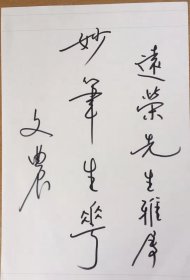 遠榮先生雅屬
妙筆生花
文農